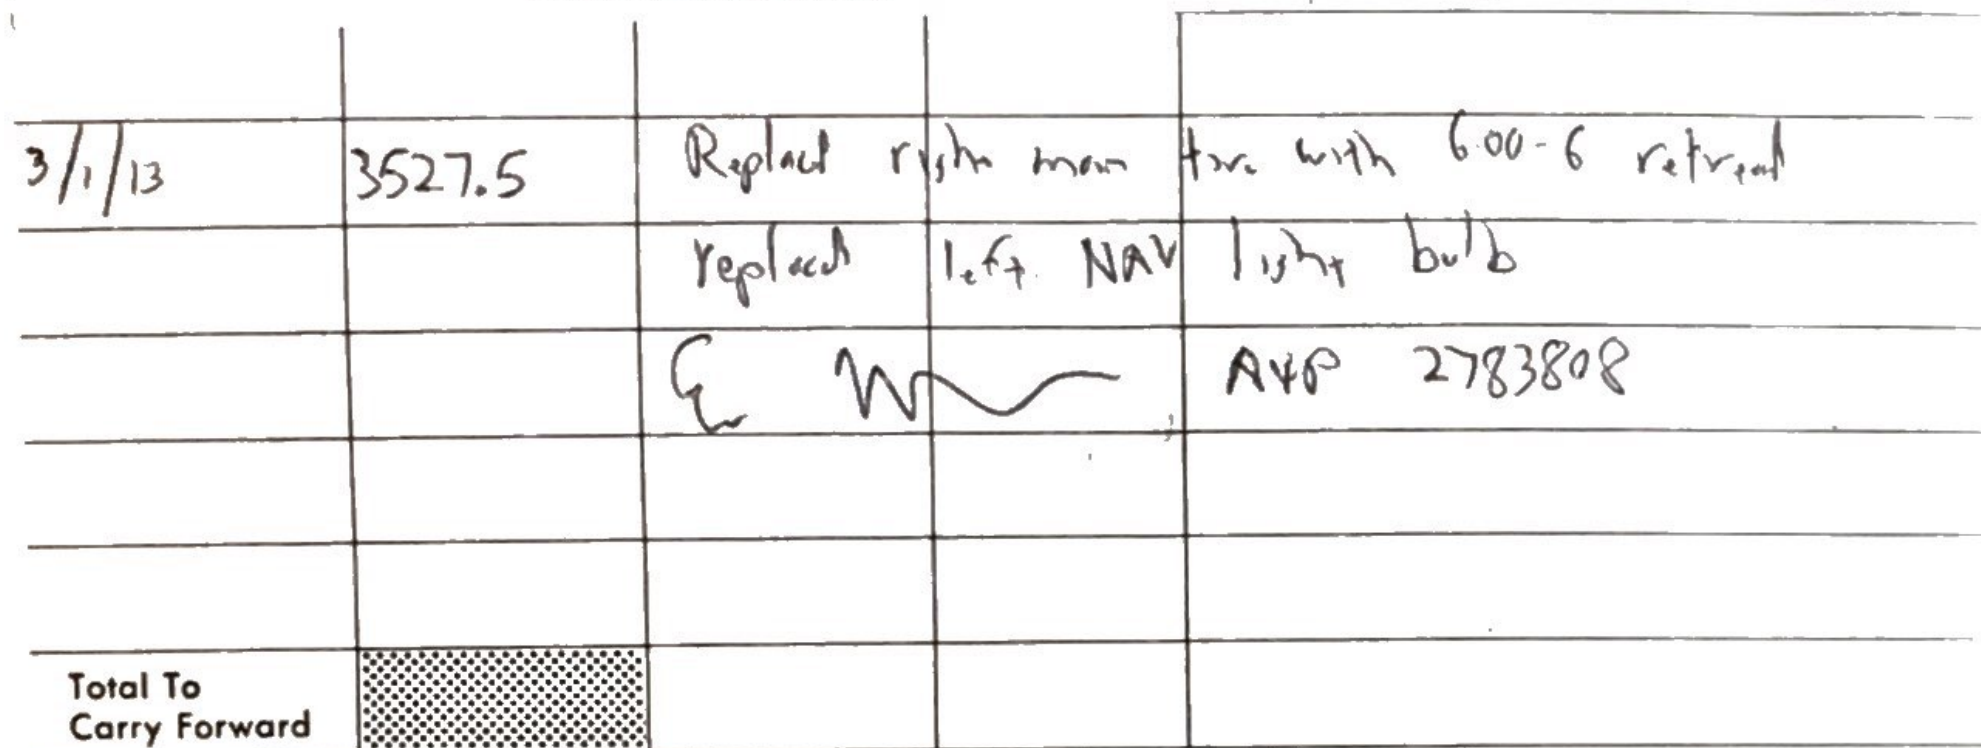 3/1/13 3527.5 Replaced right main tire with 6.00-6 retread
replaced left NAV light bulb
A&P 2783808
Total To
Carry Forward